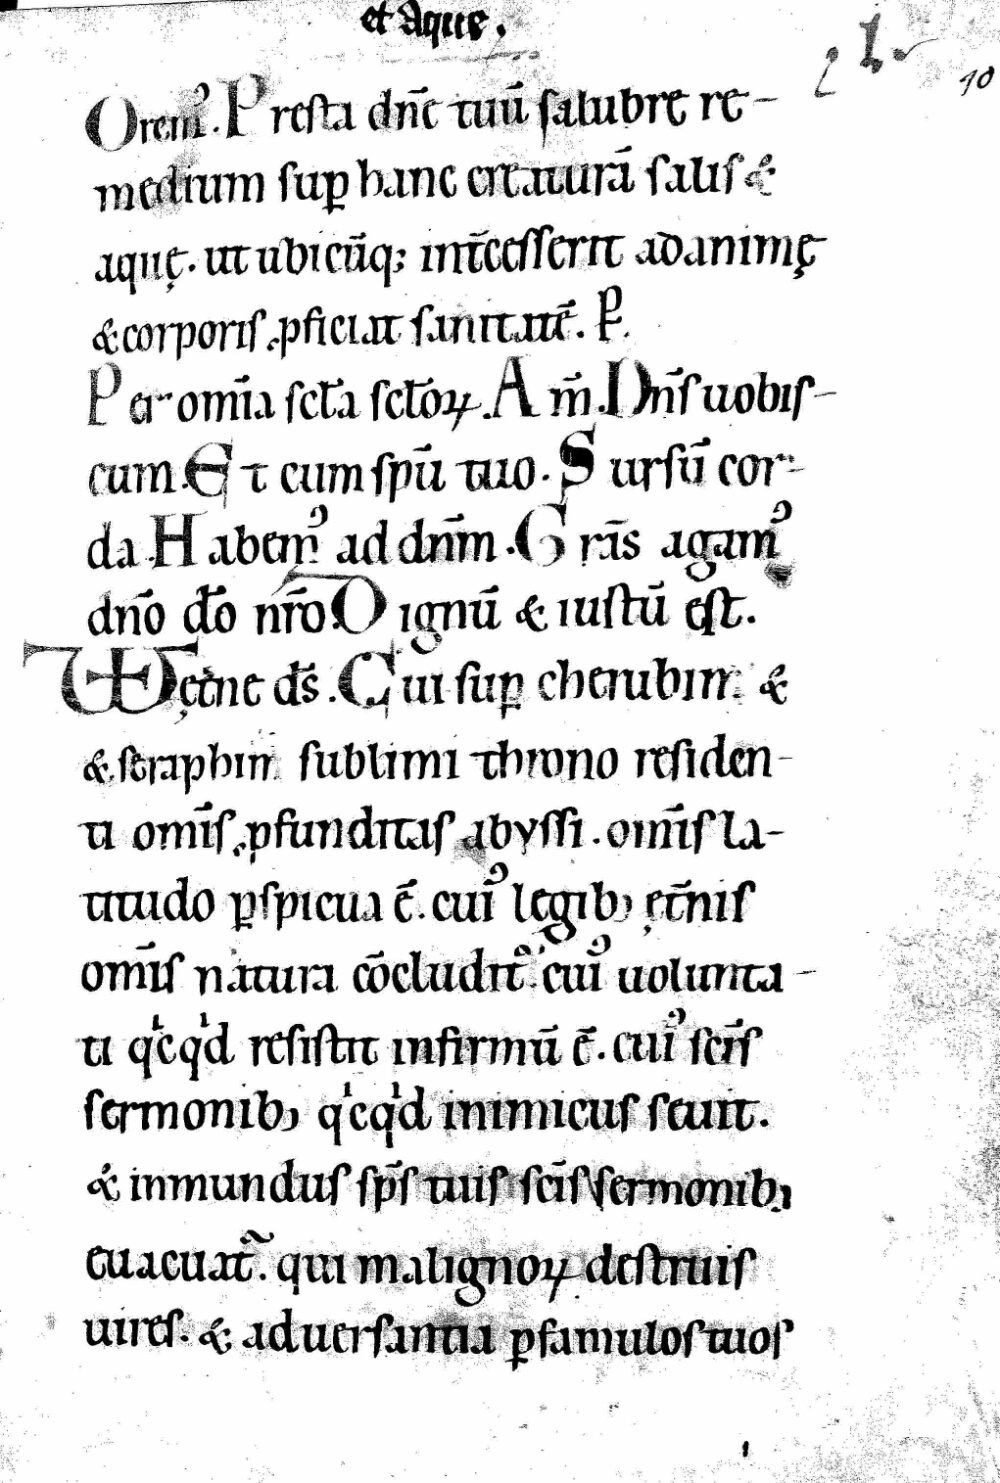 et Aque.
10
Orem᷒. Presta dn̄e tuū salubre re-
medium sup̱ hanc creaturā salis &
aquę. ut ubicūq; int̄cesserit ad animę
& corporis ꝓficiat sanitatē. P̱.
Per om̄ia sc̄ta sc̄toꝝ. Am̄. Dn̄s uobis-
cum. Et cum sp̄u tuo. Sursū cor-
da. Habem᷒ ad dn̄m. Gr̄as agam᷒
dn̄o dō nr̄o. Dignū & iustū est.
VD ęt̄ne ds̄. Cui sup̱ cherubim &
& seraphim sublimi throno residen-
ti om̄is ꝓfunditas abyssi. om̄is la-
titudo ꝑspicua ē. cui᷒ legib; ęt̄nis
om̄is natura cōcludit᷒. cui᷒ uolunta-
ti qͥcqͥd resistit infirmū ē. cui᷒ sc̄is
sermonib; qͥcqͥd inimicus seuit.
& inmundus sp̄s tuis sc̄is sermonib;
euacuat᷒. qui malignoꝝ destruis
uires. & aduersantia ꝑ famulos tuos